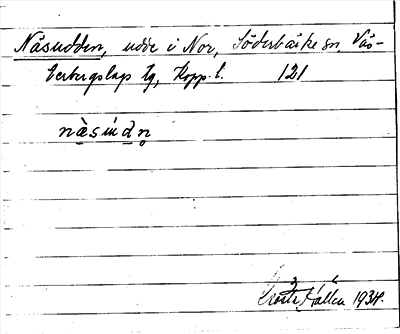 Näsudden, udde i Nor, Söderbärke sn. Väs-
terbergslags tg, Kopp. l. 121
nä̀súdn̥
Hällen 1934.